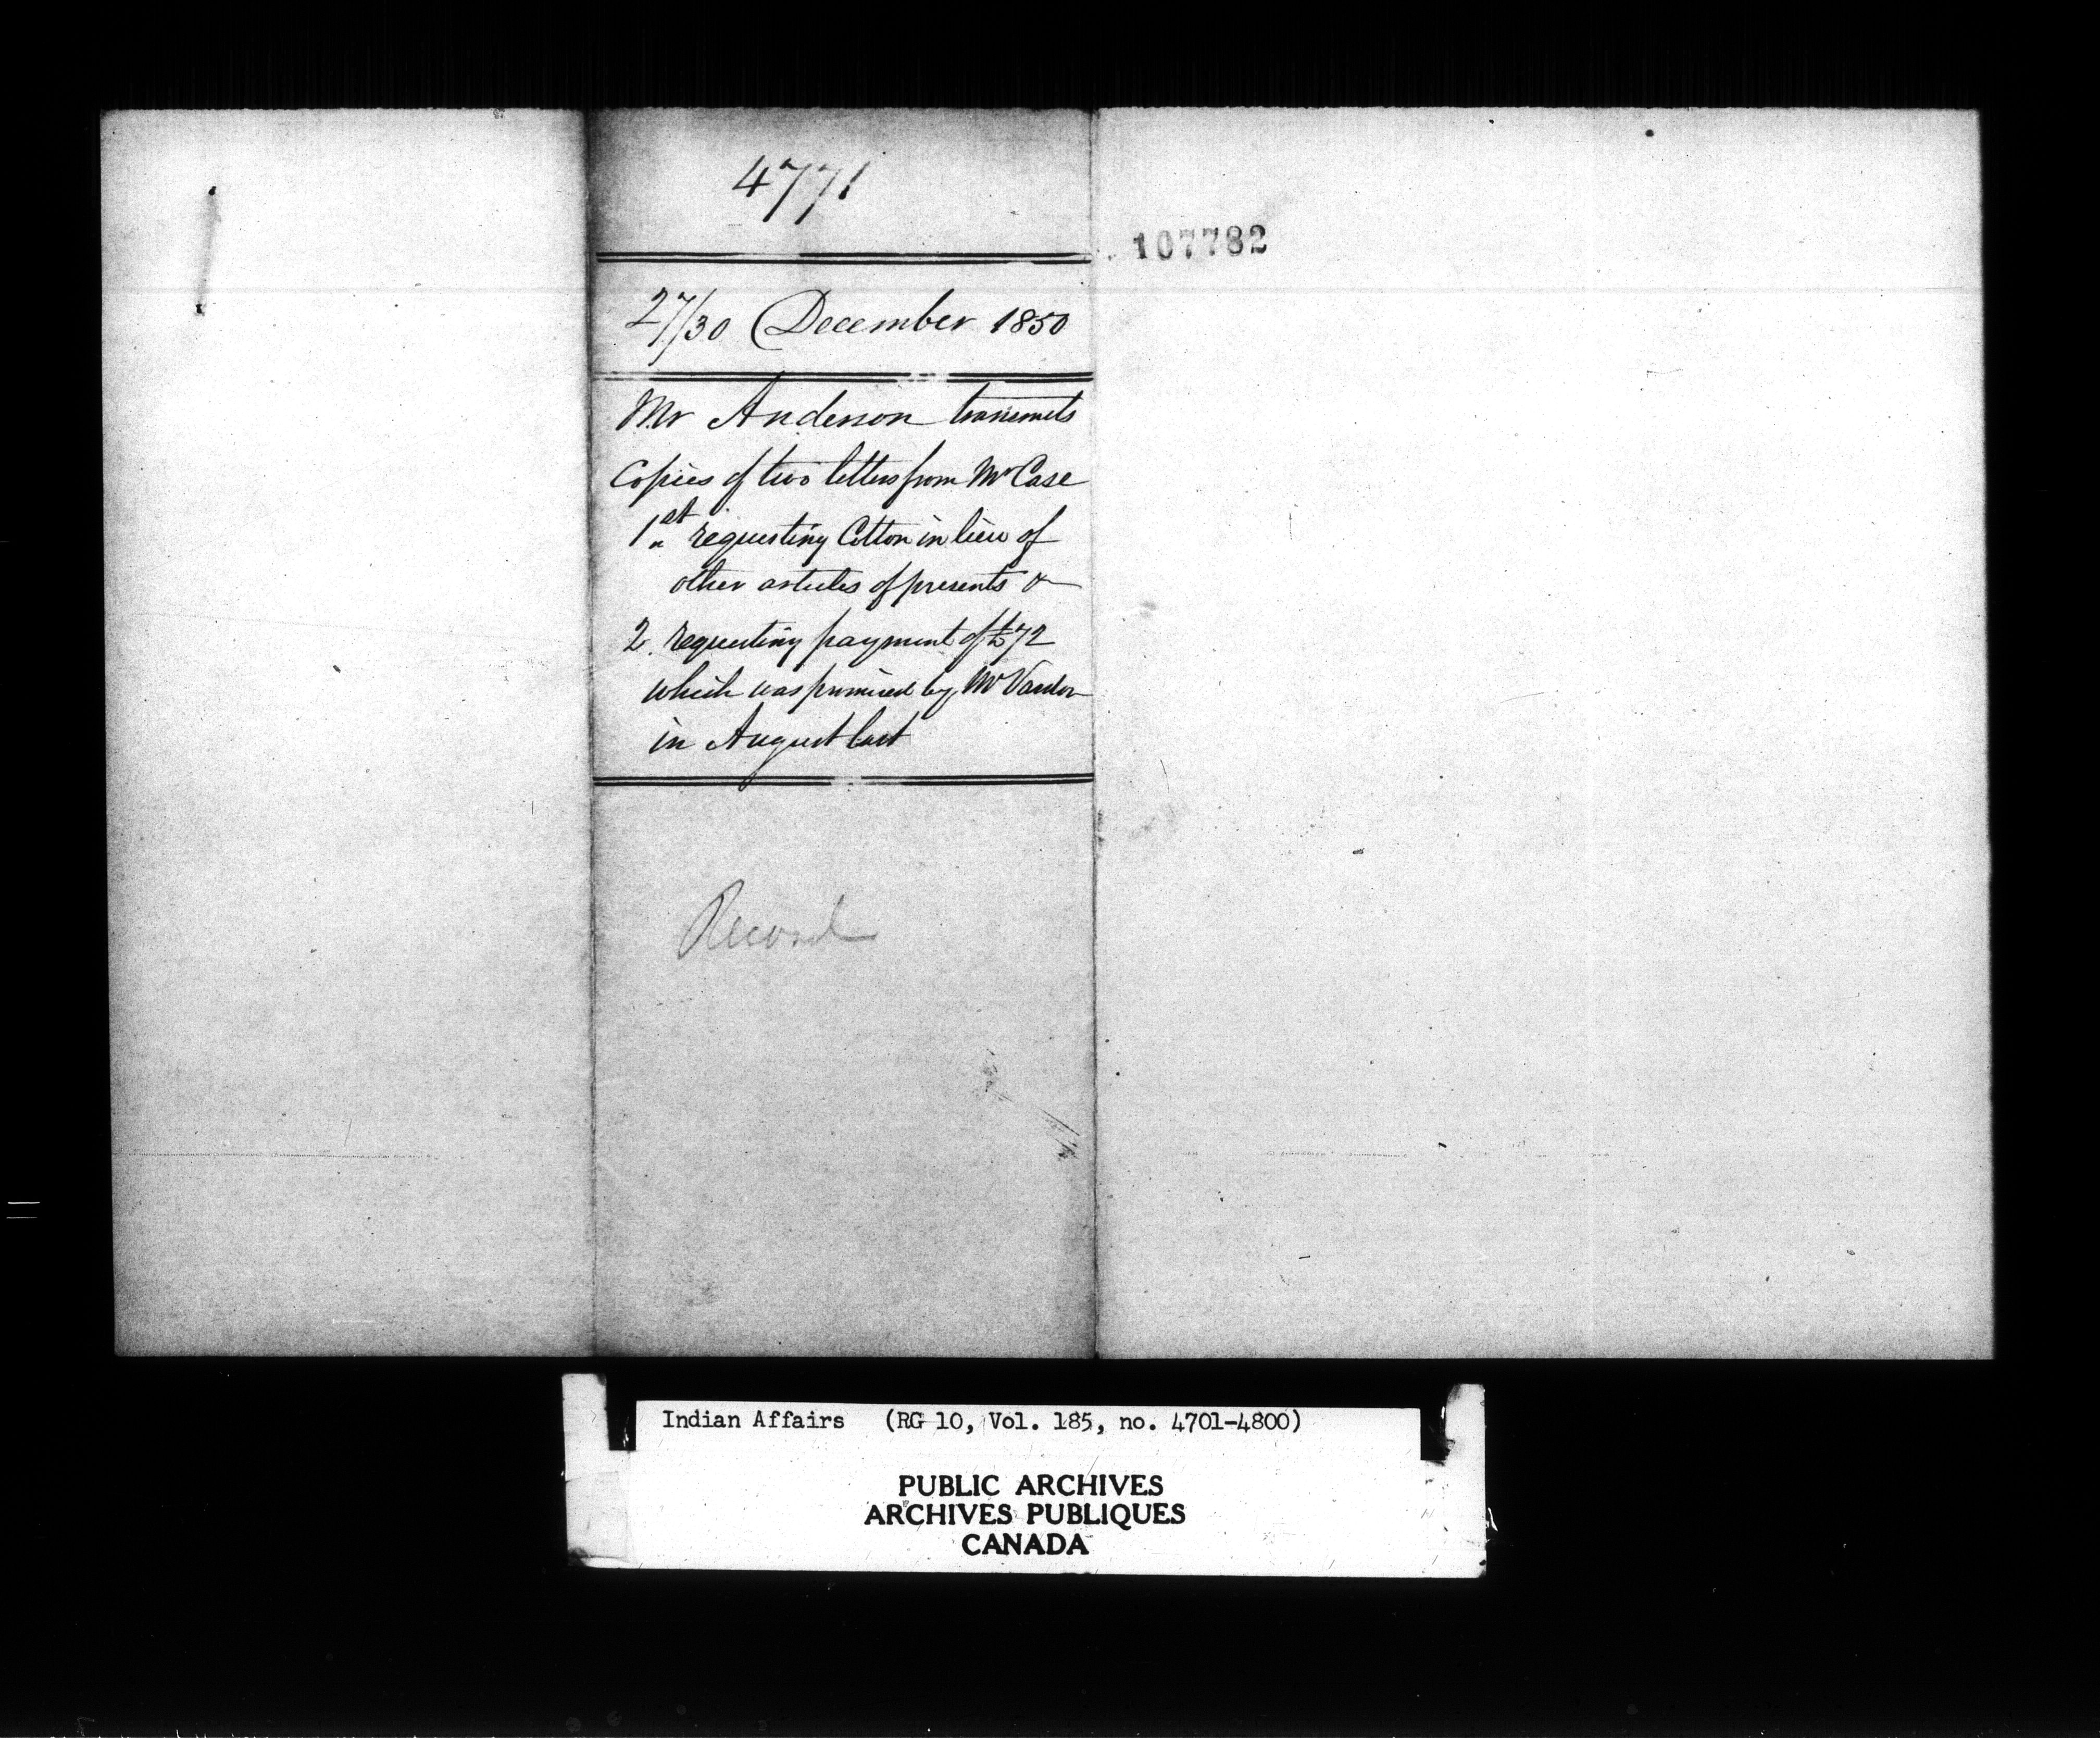 4771
107782
27/30 December 1850
Mr Anderson transmits
Copies of two letters from Mr Case
1st requesting Cotton in lieu of
other articles of presents &
2. requesting payment of £72
which was promised by Mr Vardon
in August last
Record
Indian Affairs (RG 10, Vol. 185, no. 4701-4800)
PUBLIC ARCHIVES
ARCHIVES PUBLIQUES
CANADA